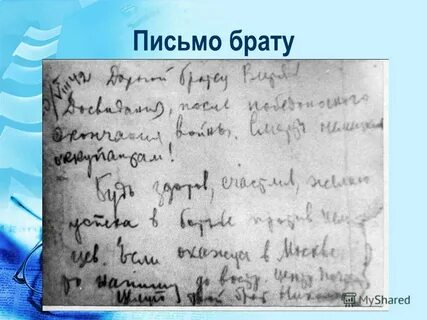 Письмо брату
VIII 42 Дорогой братец
Досвидания, после победоносного
окончания войны. Смерть немецким
оккупантам!
Будь здоров, счастлив, желаю
успеха в борьбе против нем
цев. Если окажеся в Москве
то напиши до востр.
твой брат
MyShared